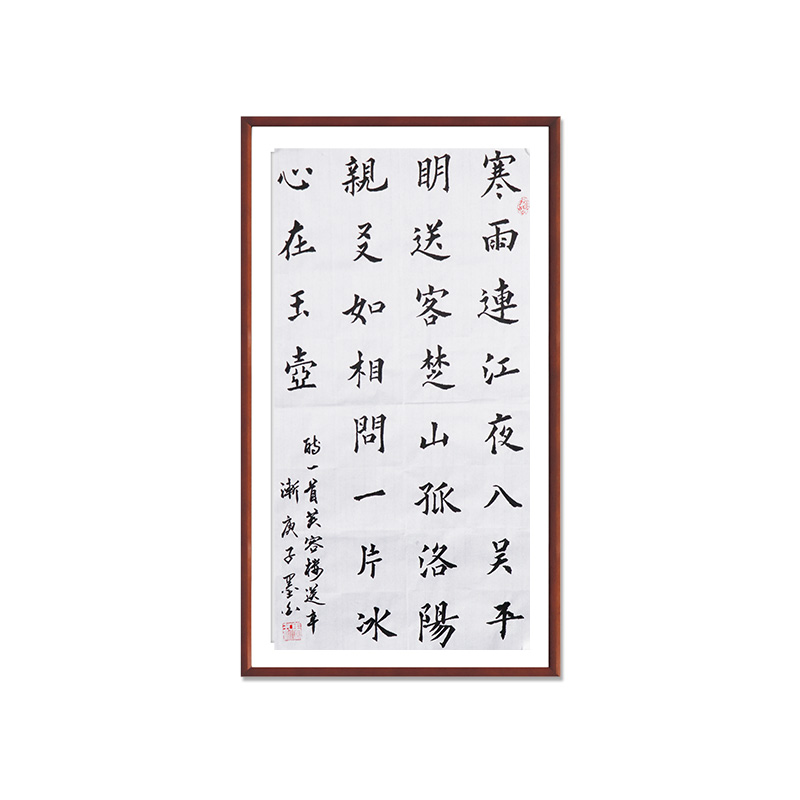 寒雨連江夜入吳平
明送客楚山孤洛陽
親友如相問一片冰
心在玉壺
詩一首芙容樓送辛
漸庚子墨白